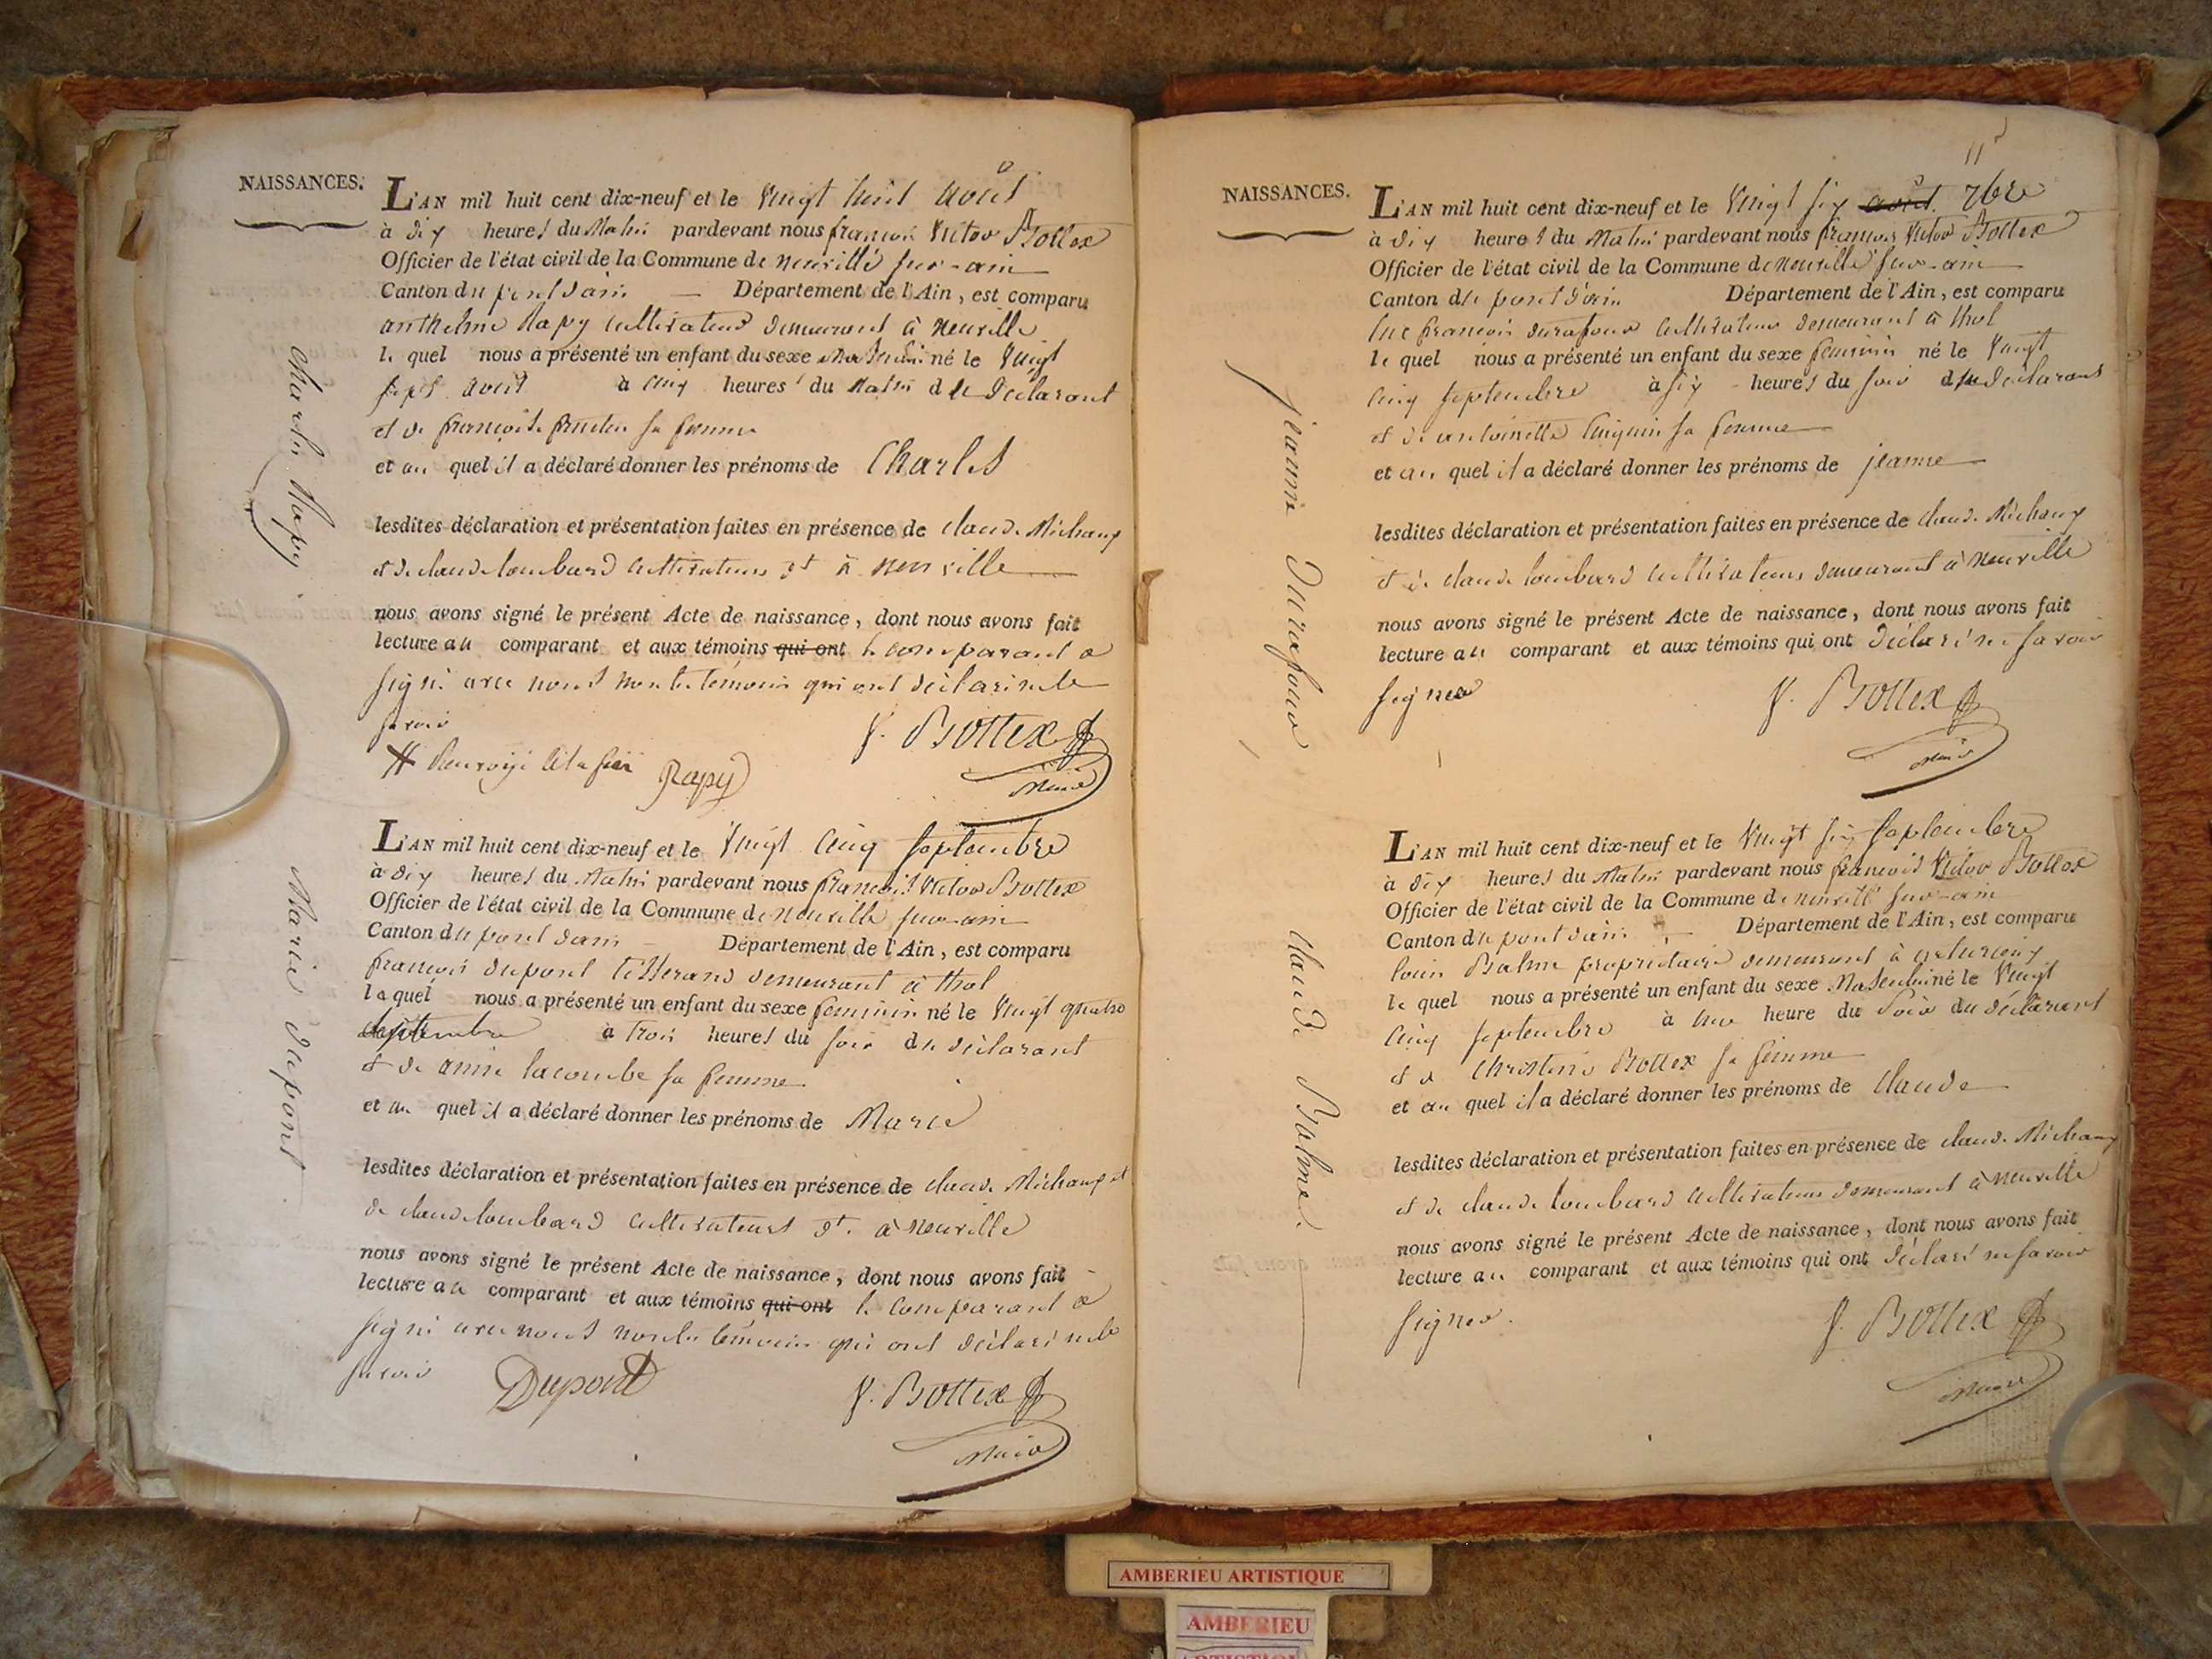 NAISSANCES.
L'AN mil huit cent dix-neuf et le Vingt huit août
à dix heures du Matin pardevant nous françois Victor Bottex
Officier de l'état civil de la Commune de neuville sur-ain
Canton du pont dain — Département de l'Ain, est comparu
anthelme Rapy cultivateur demeurant à neuville
le quel nous a présenté un enfant du sexe Masculin né le Vingt
sept août à cinq heures du Matin du Déclarant
et de françoise sa femme
et au quel il a déclaré donner les prénoms de Charles
lesdites déclaration et présentation faites en présence de claude Michaux
et de claude lombard cultivateurs dt à neuville
nous avons signé le présent Acte de naissance, dont nous avons fait
lecture au comparant et aux témoins qui ont le comparant a
signé avec nous non les témoins qui ont déclaré ne le
savoir
Rapy
f. Bottex
Maire
Charles Rapy
L'AN mil huit cent dix-neuf et le Vingt cinq septembre
à dix heures du Matin pardevant nous françois Victor Bottex
Officier de l'état civil de la Commune de neuville sur-ain
Canton du pont dain — Département de l'Ain, est comparu
françois dupont tisserand demeurant à thol
le quel nous a présenté un enfant du sexe feminin né le Vingt quatre
septembre à trois heures du soir du déclarant
et de anne lacombe sa femme
et au quel il a déclaré donner les prénoms de Marie
lesdites déclaration et présentation faites en présence de claude Michaux et
de claude lombard cultivateurs dt. à neuville
nous avons signé le présent Acte de naissance, dont nous avons fait
lecture au comparant et aux témoins qui ont le comparant a
signé avec nous non les témoins qui ont déclaré ne le
savoir
Dupont
f. Bottex
Maire
Marie dupont
11
NAISSANCES.
L'AN mil huit cent dix-neuf et le Vingt six août 7bre
à dix heures du Matin pardevant nous françois Victor Bottex
Officier de l'état civil de la Commune de neuville sur-ain
Canton du pont d'ain Département de l'Ain, est comparu
luc françois durafour cultivateur demeurant à thol
le quel nous a présenté un enfant du sexe feminin né le Vingt
cinq septembre à six heures du soir du déclarant
et de antoinette sa femme
et au quel il a déclaré donner les prénoms de jeanne
lesdites déclaration et présentation faites en présence de claude Michaux
et de claude lombard cultivateurs demeurant à neuville
nous avons signé le présent Acte de naissance, dont nous avons fait
lecture au comparant et aux témoins qui ont déclaré ne savoir
signer
f. Bottex
Maire
jeanne Durafour
L'AN mil huit cent dix-neuf et le Vingt six septembre
à dix heures du Matin pardevant nous françois Victor Bottex
Officier de l'état civil de la Commune de neuville sur-ain
Canton du pont dain — Département de l'Ain, est comparu
louis Balme propriétaire demeurant à
le quel nous a présenté un enfant du sexe Masculin né le Vingt
cinq septembre à une heure du soir du déclarant
et de Christine Bottex sa femme
et au quel il a déclaré donner les prénoms de claude
lesdites déclaration et présentation faites en présence de claude Michaux
et de claude lombard cultivateurs demeurant à neuville
nous avons signé le présent Acte de naissance, dont nous avons fait
lecture au comparant et aux témoins qui ont déclaré ne savoir
signer.
f. Bottex
Maire
claude Balme
AMBERIEU ARTISTIQUE
AMBERIEU
ARTISTIQUE